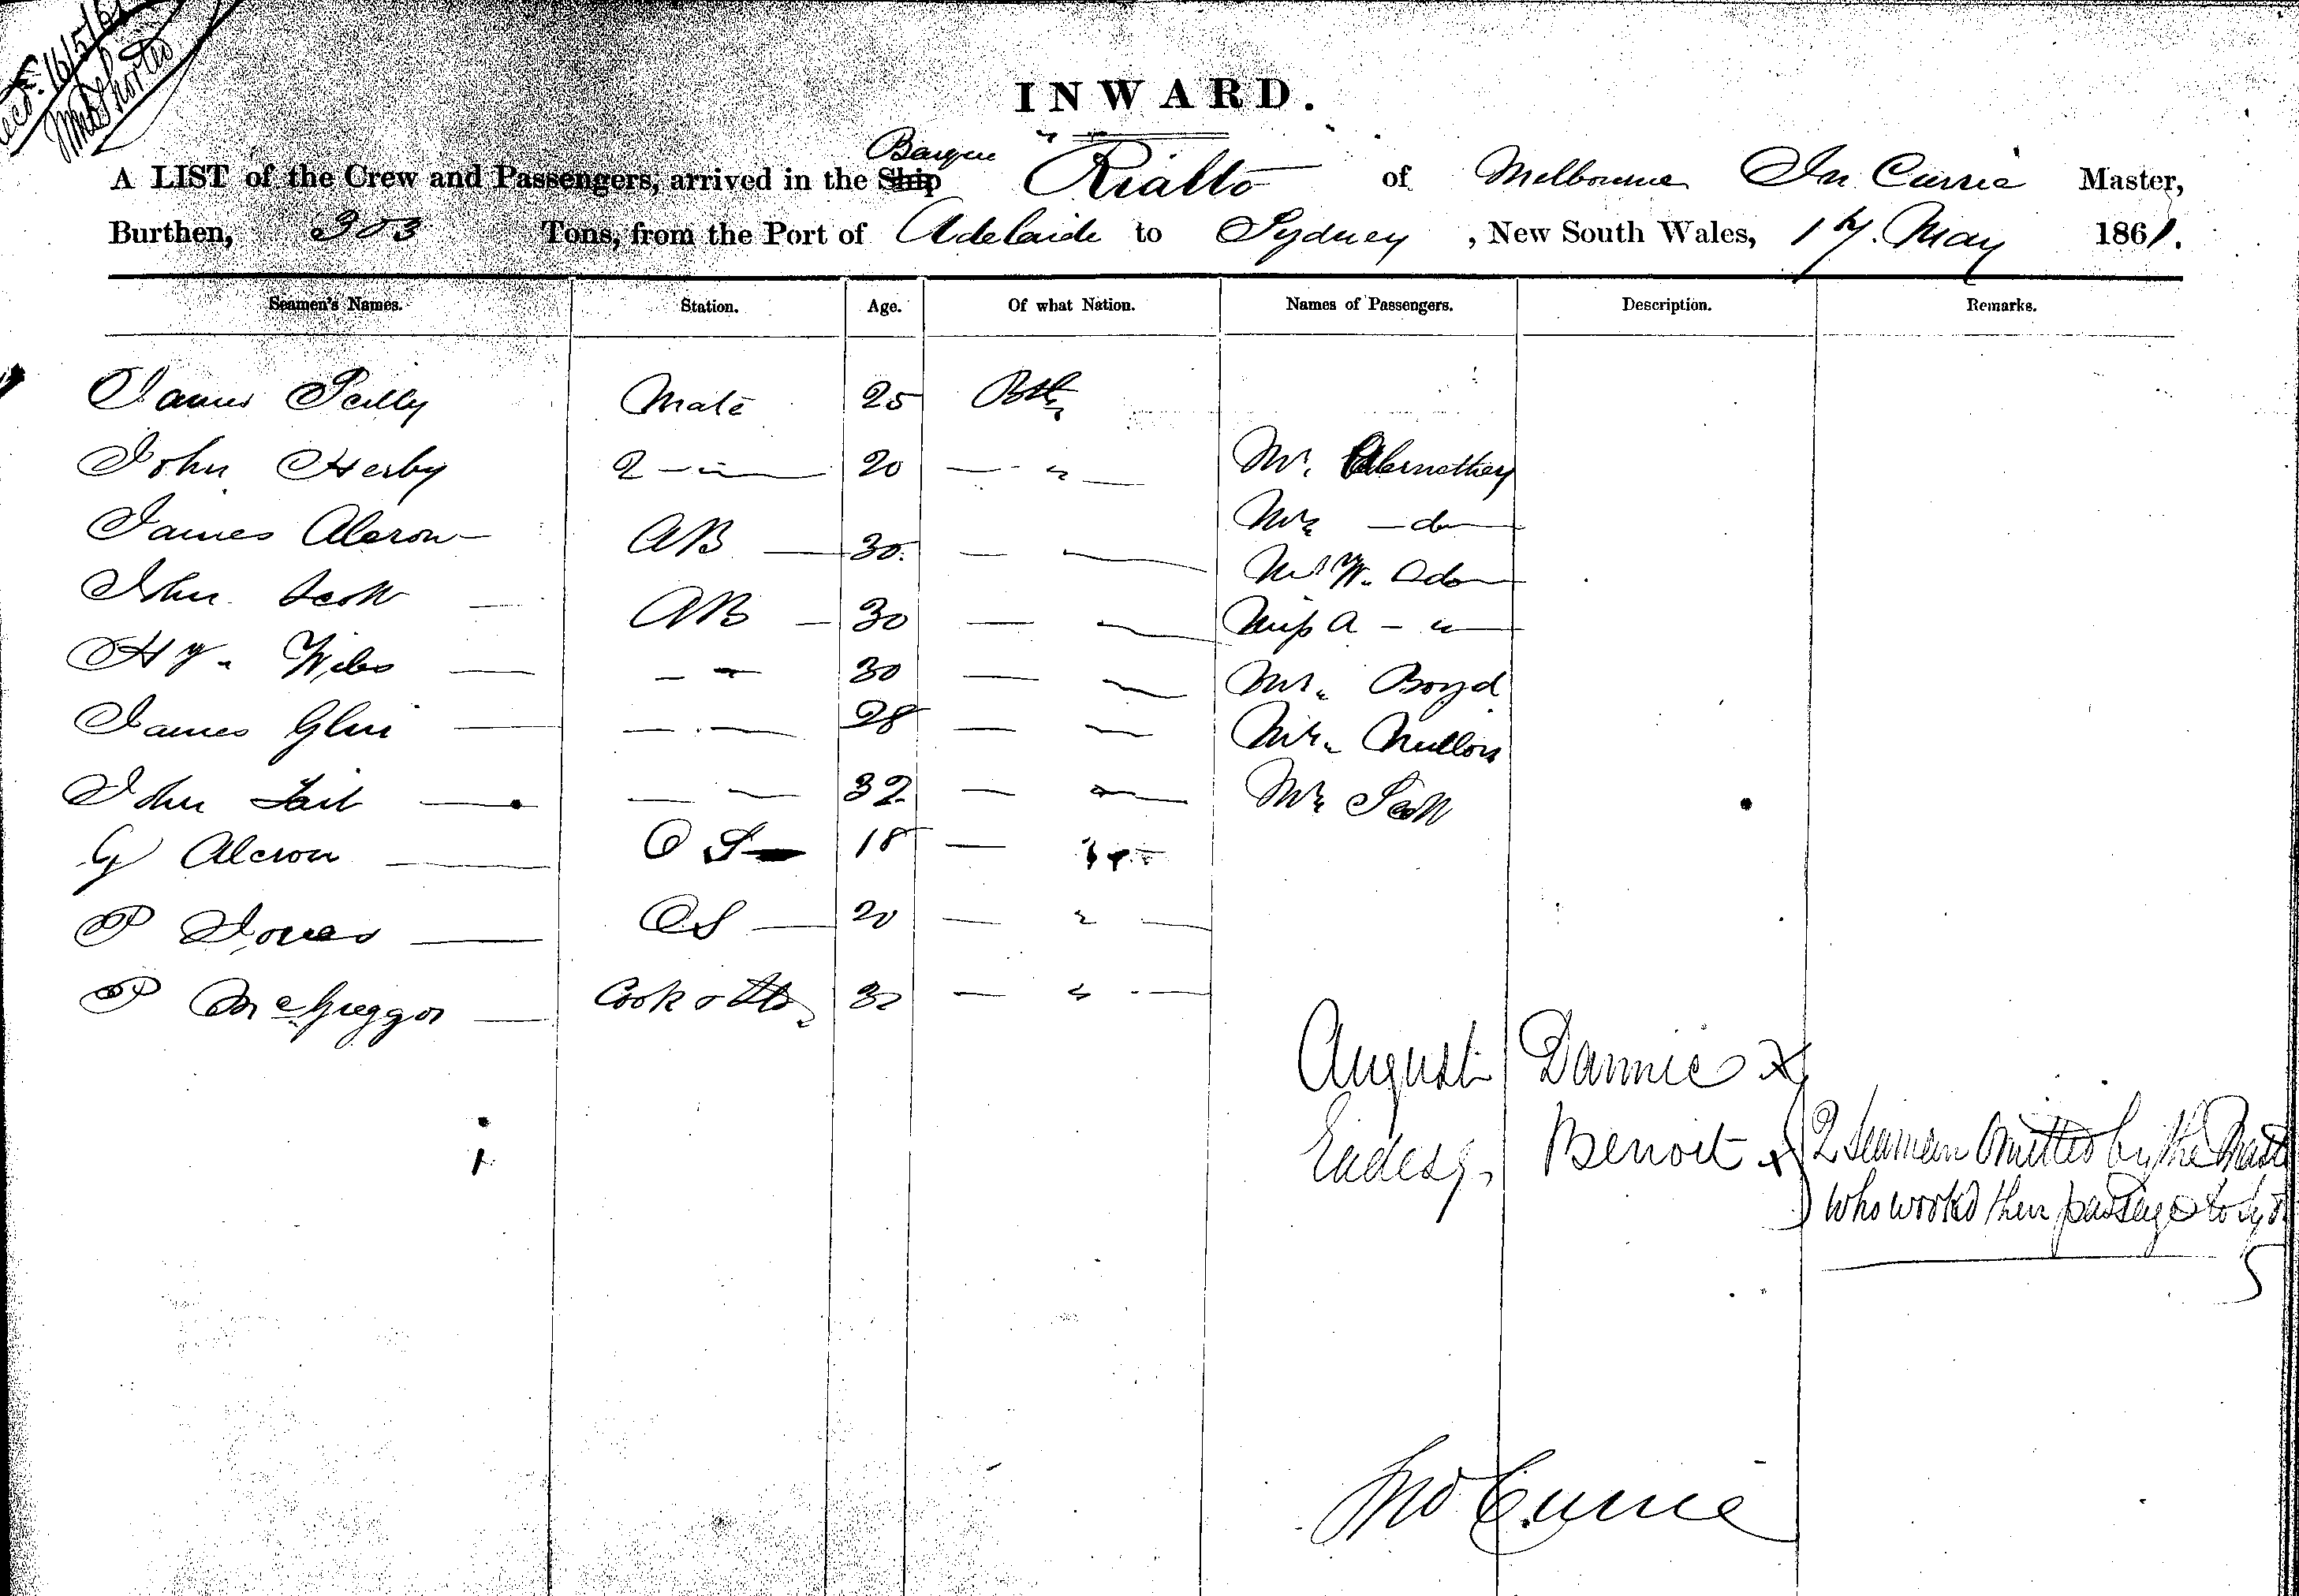 INWARD.
Barque
A LIST of the Crew and Passengers, arrived in the Ship Rialto of Melbourne Jn Currie Master,
Burthen, 303 Tons, from the Port of Adelaide to Sydney, New South Wales, 17. May 1861.
Seamen's Names. Station. Age. Of what Nation. Names of Passengers. Description. Remarks.
James Mate 25
John Herby 2 — " — 20 — " — Mr. Abernathey
James Alcrow AB 30 — Mrs — do —
John Scott AB 30 — Mr W. do
Hy. 30 — Miss A — " —
James 28 — Mr. Boyd
John Tait 32 — Mrs.
G Alcrow O S 18 — Mrs Scott
P Jones OS 20 — " —
P McGreggor Cook & 32 — " —
August Dannie x
Benoit x 2 Seamen Omitted by the
who workd their passage to
Jno Currie